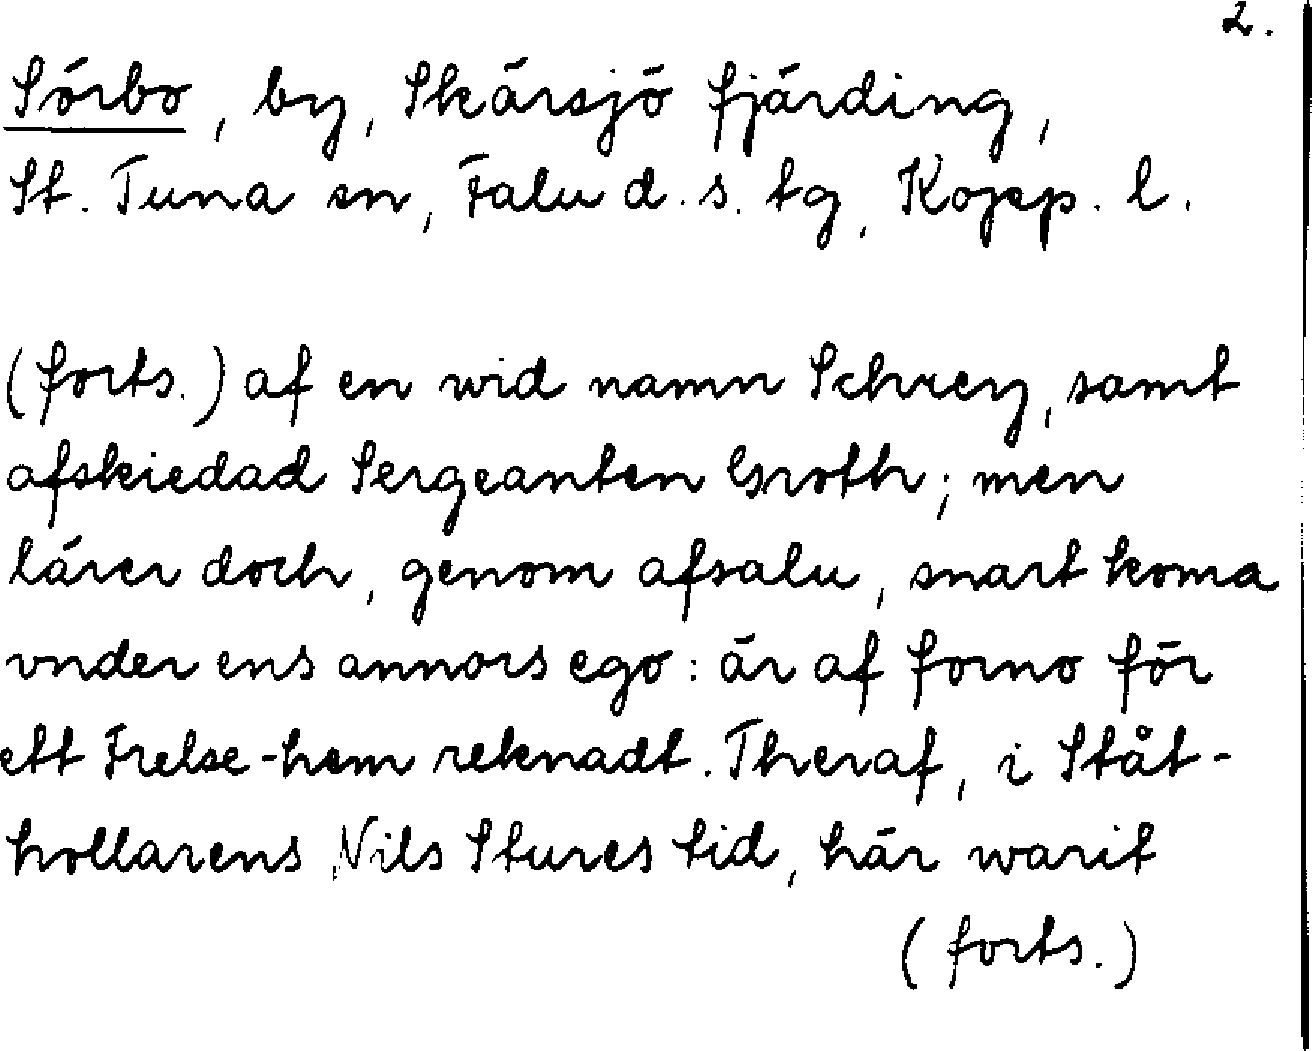 2.
Sörbo, by, Skärsjö fjärding,
St. Tuna sn, Falu d. s. tg, Kopp. l.
(forts.) af en wid namn Schrey, samt
afskiedad Sergeanten Groth; men
lärer doch, genom afsalu, snart koma
vnder ens annors ego: är af forno för
ett Frelse-hem reknadt. Theraf, i Ståt-
hollarens Nils Stures tid, här warit
(forts.)